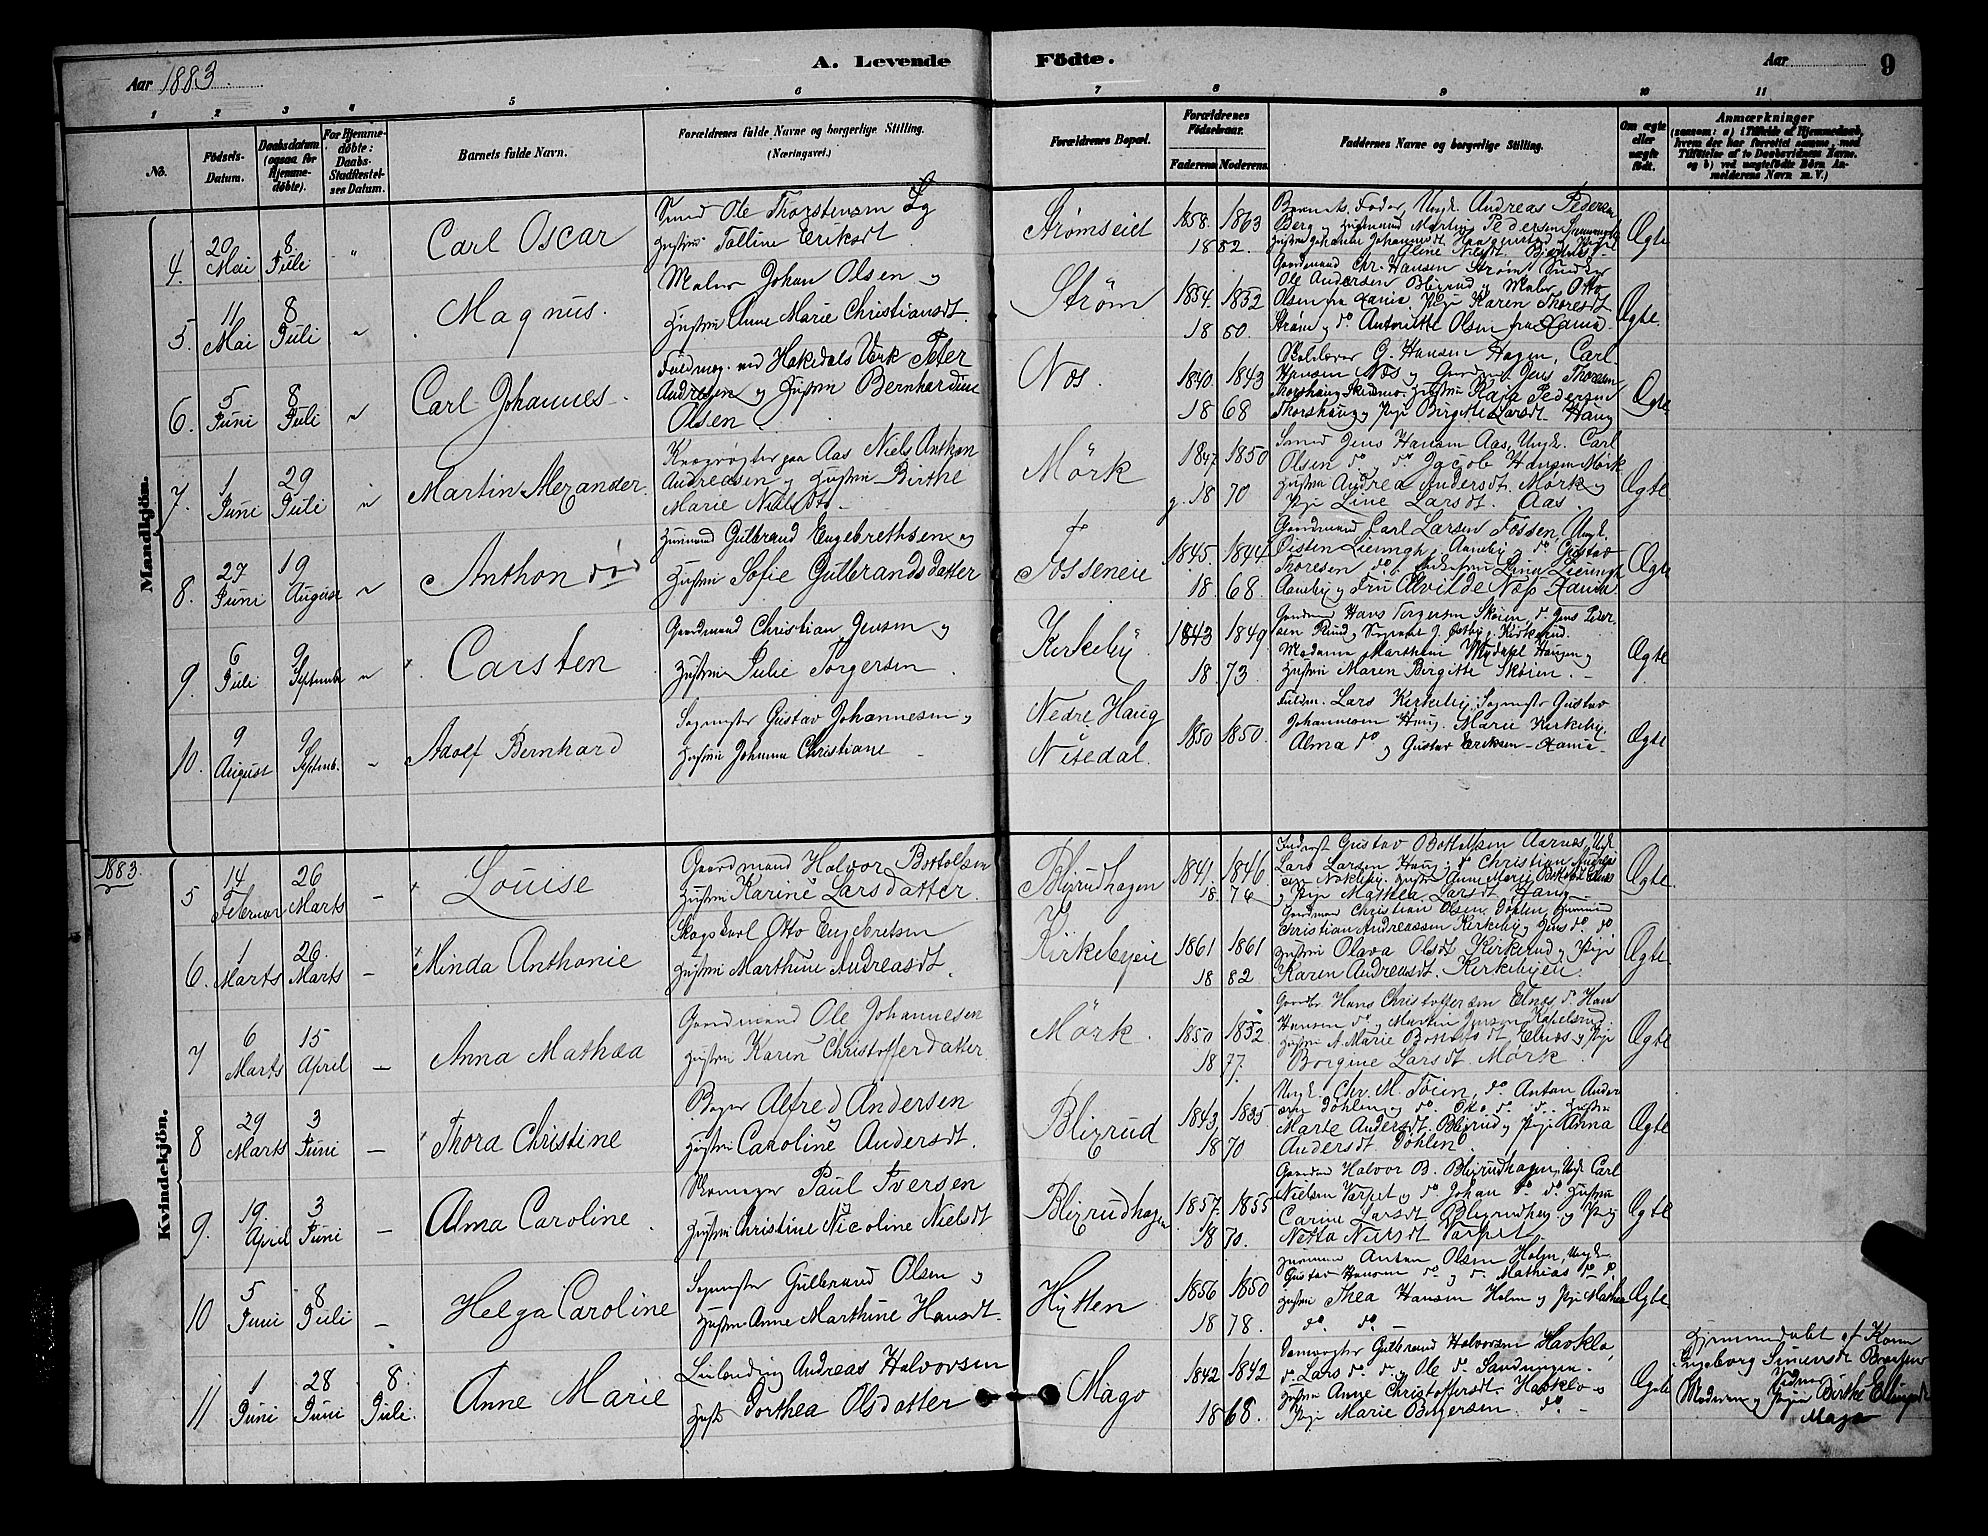 Aar 1883.
A. Levende
Födte.
Aar
9
1 2 3 4 5 6 7 8 9 10 11
No.
Födsels-Datum.
Daabsdatum (ogsaa for Hjemme-döbte).
For Hjemme-döbte: Daabs-Stadfæstel-ses Datum.
Barnets fulde Navn.
Forældrenes fulde Navne og borgerlige Stilling.
(Næringsvei.)
Forældrenes Bopæl.
Forældrenes Födselsaar.
Faderens. Moderens.
Faddernes Navne og borgerlige Stilling.
Om ægte eller uægte födt.
Anmærkninger
(saasom: a) i Tilfælde af Hjemmedaab, hvem der har forrettet samme, med Tilföielse af to Daabsvidners Navne, og b) ved uægtefödte Börn An-melderens Navn m. V.)
Mandkjön.
4. 20 Mai 8. Juli " Carl Oscar
Smed Ole Thorstensen og
Hustru Talline Eriksdt
Strømseiet 1858. 1863 1882.
Barnets Fader, Ungk. Andreas Pedersen
Berg og Husmand Martin Pedersen
Ægte
5. 11 Mai 8 Juli " Magnus.
Maler Johan Olsen og
Hustru Anne Marie Christiansdt.
Strøm 1854. 1852 1850.
Gaardmand Chr. Hansen Strøm Snedker
Ole Andersen Blixrud og Maler Otto
Olsen fra Xania Pige Karen Thoresdt
Strøm og do Antoinette Olsen fra Xania.
Ægte.
6. 5 Juni 8 Juli " Carl Johannes.
Fuldmæg. ved Hakedals Verk Peter
Andresen og Hustru Bernhardine
Olsen.
Nos. 1840. 1843 1868
Skolelærer G. Hansen Hagen, Carl
Hansen Nos og Gaardm. Jens Thoresen
Thorshaug Hustru Kaja Pedersen
Thorshaug og Pige Birgitte Larsdt. Haug
Ægte
7. 1 Juni 29 Juli " Martin Alexander.
Kvægrøgter paa Aas Niels Anthon
Andreasen og Hustru Birthe
Marie Nielsdt.
Mörk 1847. 1850 g. 1870
Smed Jens Hansen Aas, Ungk. Carl
Olsen do, do Jacob Hansen Mörk
Hustru Andrea Andersdt. Mörk og
Pige Line Larsdt. Aas.
Ægte
8. 27 Juni 19 August " Anthon død
Husmand Gulbrand Engebrethsen og
Hustru Sofie Gulbrandsdatter
Fosseneie 1845. 1844. 1868.
Gaardmand Carl Larsen Fossen, Ungk.
Øisten Lieungh, Aaneby, do Gustav
Thoresen do, Lina Lieungh
Aaneby og Fru Alvilde Næss Xania
Ægte
9. 6 Juli 9 September " Carsten
Gaardmand Christian Jensen og
Hustru Julie Torgersen
Kirkeby. 1843 1849 1873.
Gaardm. Hans Torgersen Skøien, do Jens Peder-
sen Rud, Kirkerud.
Madame Marthea Haugen og
Hustru Maren Birgitte Skøien.
Ægte
10. 9 August 9 Septemb. " Adolf Bernhard
Sagmester Gustav Johannesen og
Hustru Johanne Christiane
Nedre Haug
Nitedal.
1850 1850.
Fuldm. Lars Kirkeby, Sagmester Gustav
Johannesen Haug. Marie Kirkeby.
Alma do og Gustav Eriksen Xania.
Ægte
1883.
Kvindekjön.
5 14 Februar 26 Marts - Louise
Gaardmand Halvor Bottolfsen
Hustru Karine Larsdatter.
Blixrudhagen 1841. 1846 1876
Inderst Gustav Bottolfsen Aarnes, Ungk.
Lars Larsen Haug, do Christian Andrea-
sen Kirkeby, Hustru Anne Marie
og Pige Mathea Larsdt. Haug
Ægte.
6. 1 Marts 26. Marts - Minda Anthonie
Skogskarl Otto Engebretsen
Hustru Marthine Andreasdt.
Kirkebyeie 1861 1861 1882
Gaardman Christian Olsen Döhlen, Husmand
Christian Andreassen Kirkeby og Jens do do
Hustru Olava Olsdt Kirkerud og Pige
Karen Andreasdt. Kirkebyeie.
Ægte.
7 6 Marts 15 April - Anna Mathea
Gaardmand Ole Johannesen
Hustru Karen Christofferdatter.
Mörk. 1850 1852 1877.
Gaardbr. Hans Christoffersen Elnes do Hans
Hansen do og Martin Jensen Kapelsrud.
Hustru A. Marie Elnes og Pige
Borgine Larsdt. Mörk.
Ægte
8 29 Marts 3 Juni - Thora Christine
Bager Alfred Andersen
Hustru Caroline Andersdt.
Blixrud 1843, 1835 1870
Ungk. Chr. M. Toien, do Anton Ander
sen Döhlen og do Otto do do Hustru
Marte Andersdt. Blixrud og Pige Alvina
Andersdt Döhlen.
Ægte
9. 19. April 3 Juni - Alma Caroline.
Skomager Paul Iversen
Hustru Christine Nicoline Nielsdt
Blixrudhagen 1857. 1855 1870.
Gaardm. Halvor B. Blixrudhagen, Ungk. Carl
Nielsen Varpet og do Johan do do Hustru
Carine Larsdt Blixrudhag. og Pige
Netta Nielsdt Varpet.
Ægte
10 5 Juni 8 Juli - Helga Caroline
Sagmester Gulbrand Olsen og
Hustru Anne Marthine Hansdt.
Hytten 1856 1850 1878.
Husmand Anton Olsen Holm, Ungk.
Gustav Hansen do og do Mathias do do
Hustru Thea Hansen Holm og Pige Mathea
do. do.
Ægte
11 1 Juni 28 Juni 8 Juli. Anne Marie
Leilending Andreas Halvorsen
Hust. Dorthea Olsdatter
Mago 1842 1842 1868.
Damvogter Gulbrand Halvorsen Havklo,
do Lars do do og Ole do Sandungen.
Hustru Anne Christoffersdt. Havklo og
Pige Marie Birgersen do
Ægte
Hjemmedøbt af Kone
Ingeborg Simensdt Braaten
Vidner
Moderen og Pigen Birthe Ellingsdt
Mago